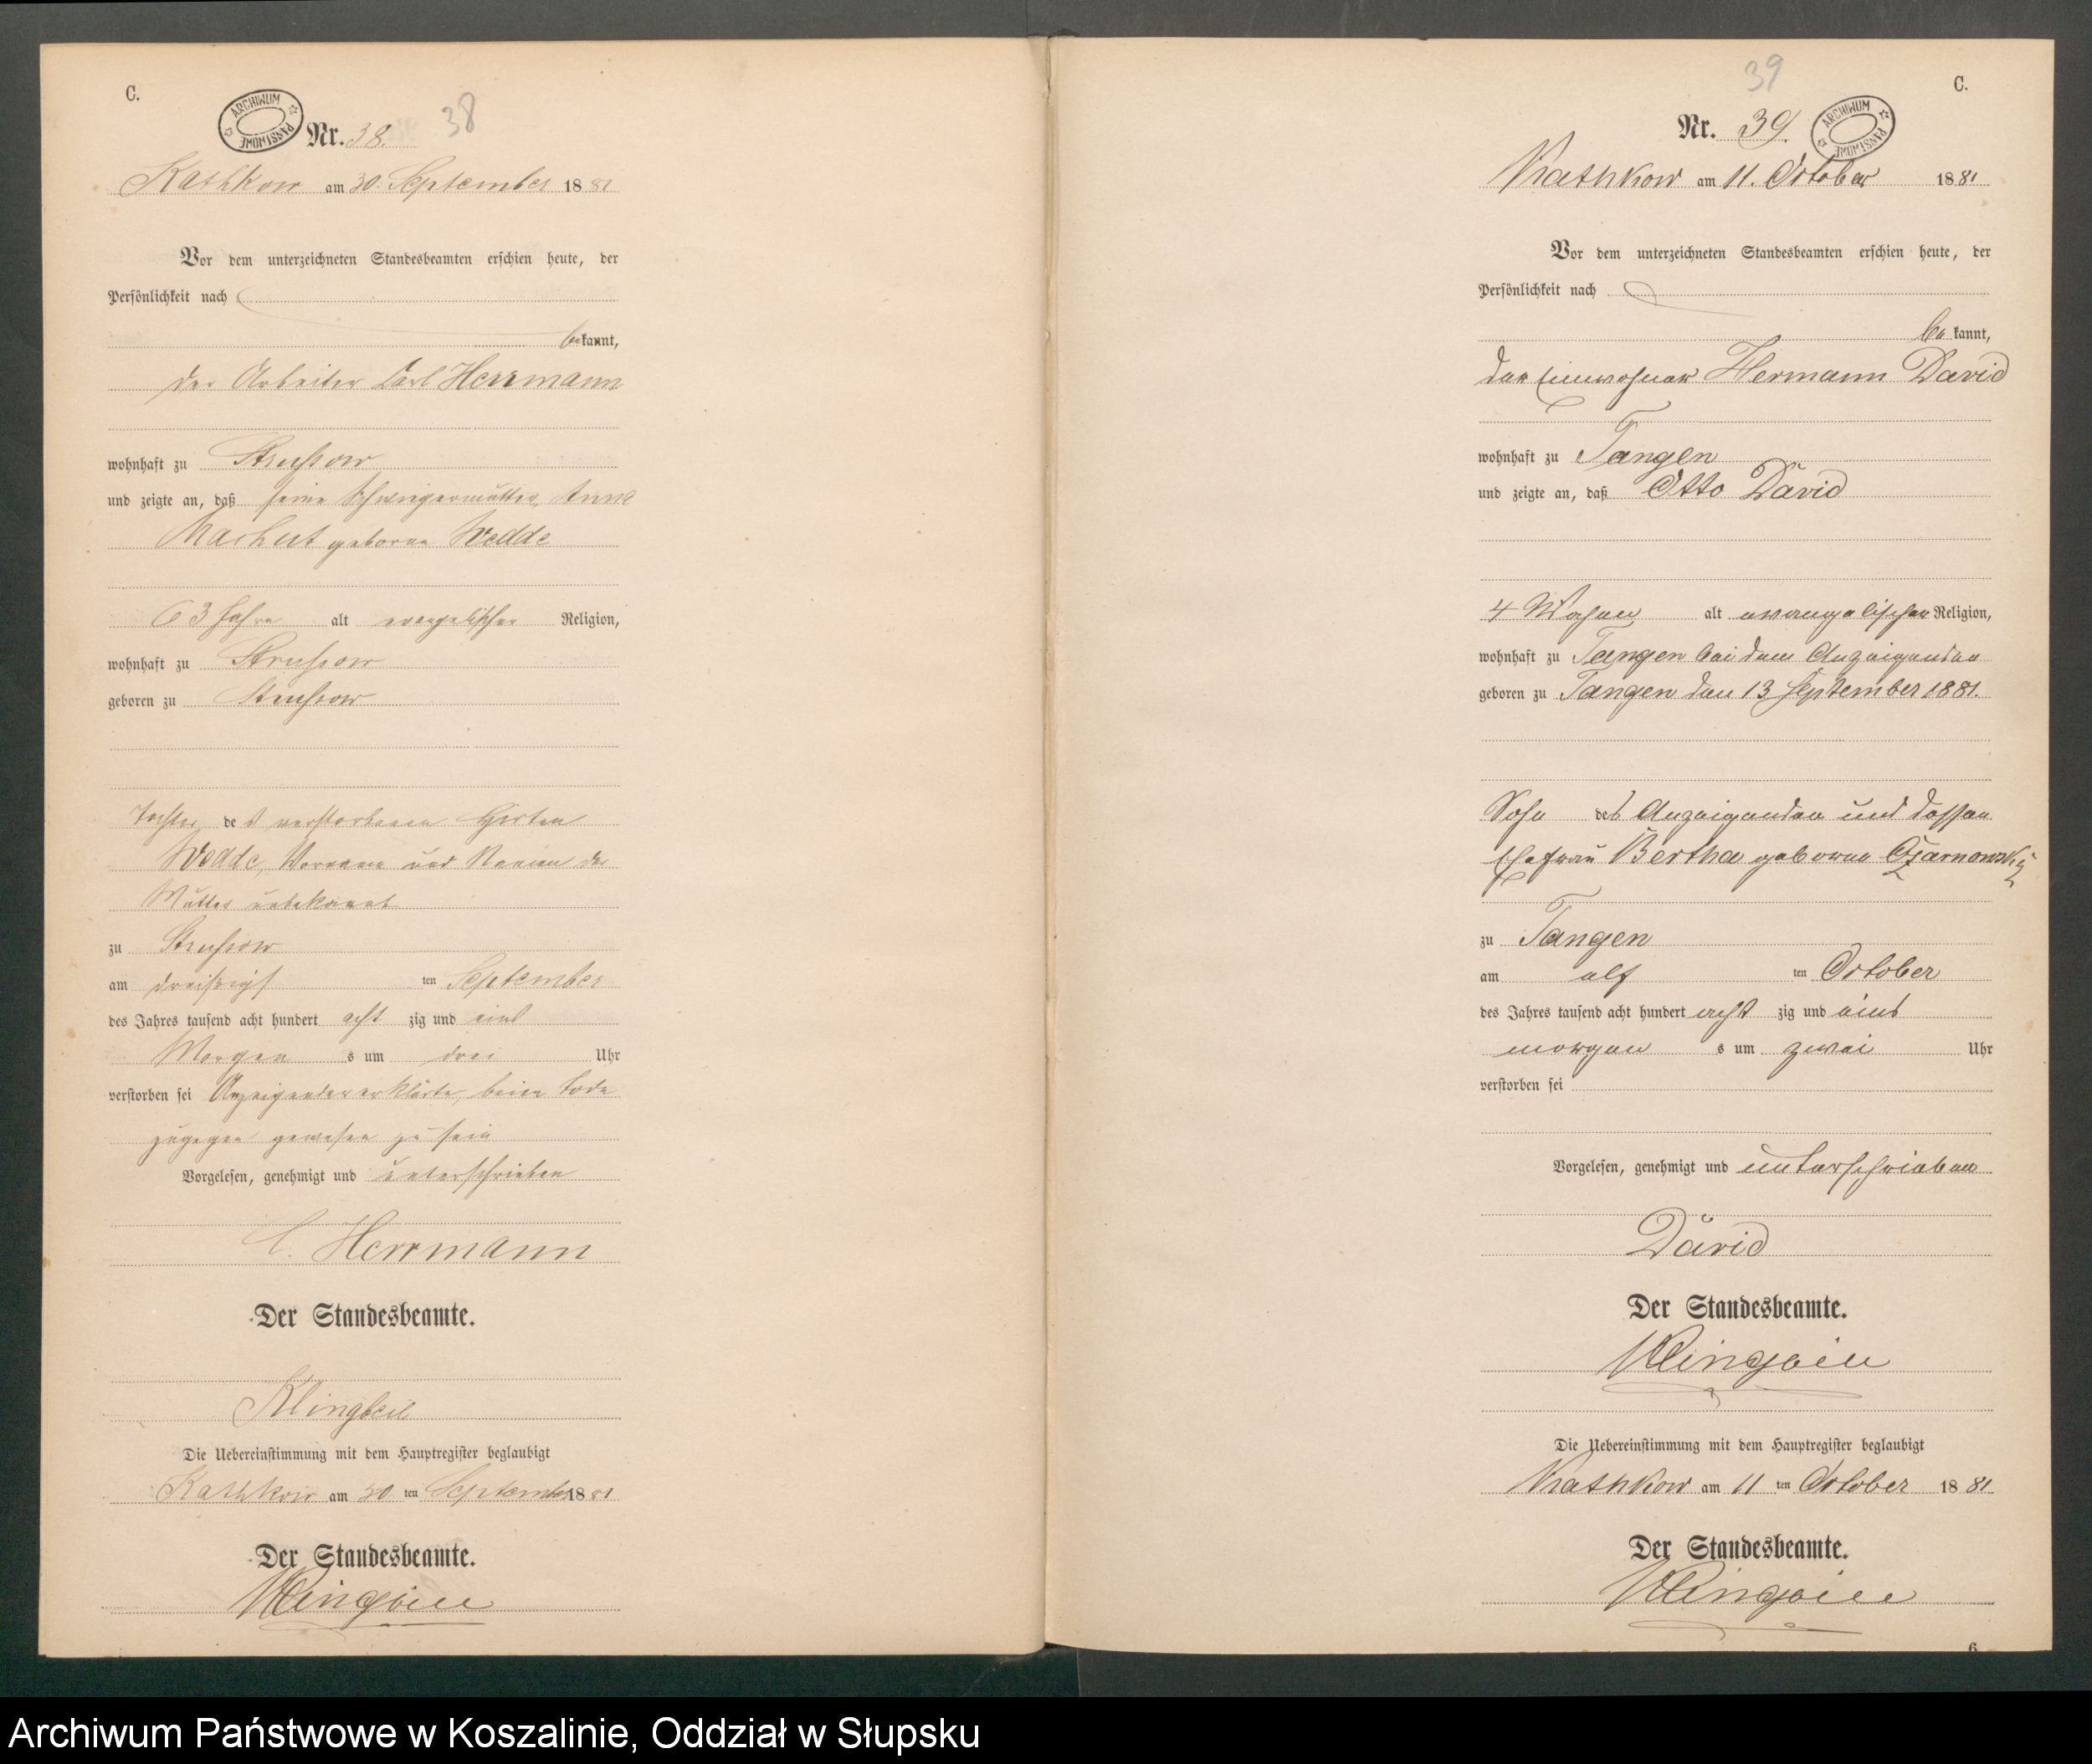 C.
ARCHIWUM PAŃSTWOWE
Nr. 38.
38
Kathkow am 30. September 1881
Vor dem unterzeichneten Standesbeamten erschien heute, der
Persönlichkeit nach
bekannt,
der Arbeiter Carl Herrmann
wohnhaft zu Strussow
und zeigte an, daß seine Schwiegermutter, Anna
Machut geborne Wedde
63 Jahre alt evangelischer Religion,
wohnhaft zu Strussow
geboren zu Strussow
Tochter des verstorbenen Hirten
Wedde, Vorname und Namen der
Mutter unbekannt
zu Strussow
am dreißigsten September
des Jahres tausend acht hundert acht zig und eins
Morgens um drei Uhr
verstorben sei Anzeigender erklärte, beim Tode
zugegen gewesen zu sein
Vorgelesen, genehmigt und unterschrieben
C. Herrmann
Der Standesbeamte.
Klingbeil
Die Uebereinstimmung mit dem Hauptregister beglaubigt
Kathkow am 30 ten September 1881
Der Standesbeamte.
Klingbeil
39
C.
Nr. 39.
ARCHIWUM PAŃSTWOWE
Kathkow am 11. October 1881
Vor dem unterzeichneten Standesbeamten erschien heute, der
Persönlichkeit nach
bekannt,
der Einwohner Hermann David
wohnhaft zu Tangen
und zeigte an, daß Otto David
4 Wochen alt evangelischer Religion,
wohnhaft zu Tangen bei dem Anzeigenden
geboren zu Tangen den 13 September 1881.
Sohn des Anzeigenden und dessen
Ehefrau Bertha geborne Czarnowsky
zu Tangen
am elf ten October
des Jahres tausend acht hundert acht zig und eins
morgens um zwei Uhr
verstorben sei
Vorgelesen, genehmigt und unterschrieben
David
Der Standesbeamte.
Klingbeil
Die Uebereinstimmung mit dem Hauptregister beglaubigt
Kathkow am 11 ten October 1881
Der Standesbeamte.
Klingbeil
6
Archiwum Państwowe w Koszalinie, Oddział w Słupsku